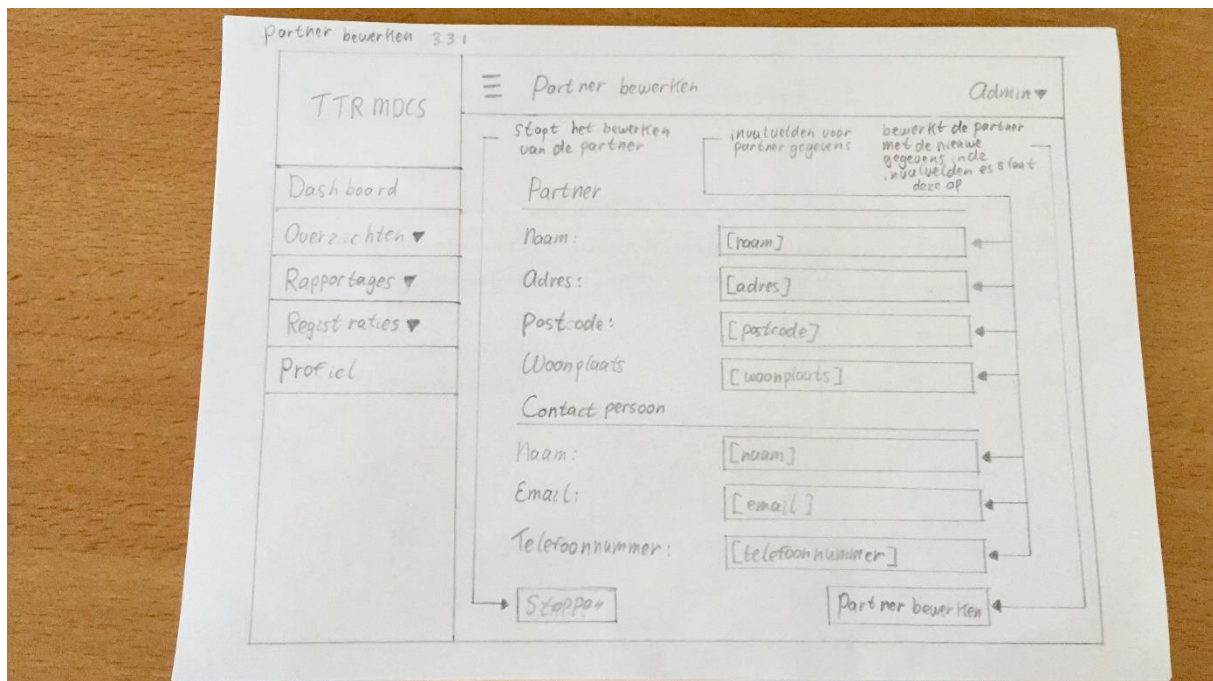 Partner bewerken 331
TTR MDCS
Dashboard
Overzichten ▼
Rapportages ▼
Registraties ▼
Profiel
☰ Partner bewerken
Admin ▼
Stopt het bewerken
van de partner
invulvelden voor
partner gegevens
bewerkt de partner
met de nieuwe
gegevens in de
invulvelden es slaat
deze op
Partner
Naam: [naam]
Adres: [adres]
Postcode: [postcode]
Woonplaats [woonplaats]
Contact persoon
Naam: [naam]
Email: [email]
Telefoonnummer: [telefoonnummer]
Stoppen
Partner bewerken